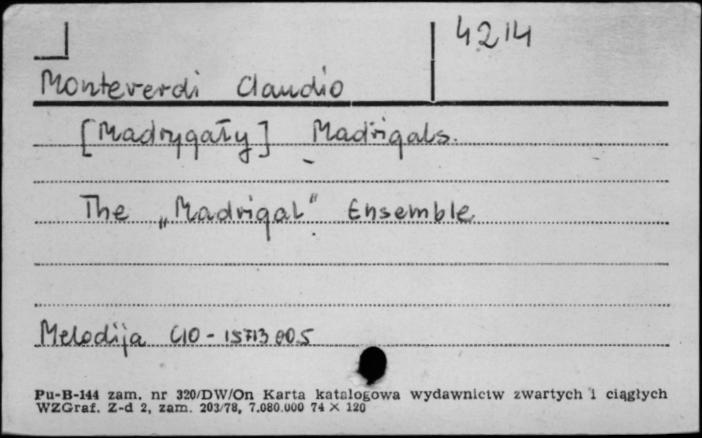 4214
Monteverdi Claudio
[Madrygały] Madrigals.
The „Madrigal" Ensemble
Melodija C10-15713005
Pu-B-144 zam. nr 320/DW/On Karta katalogowa wydawnictw zwartych i ciągłych
WZGraf. Z-d 2, zam. 203/78, 7.080.000 74 × 120